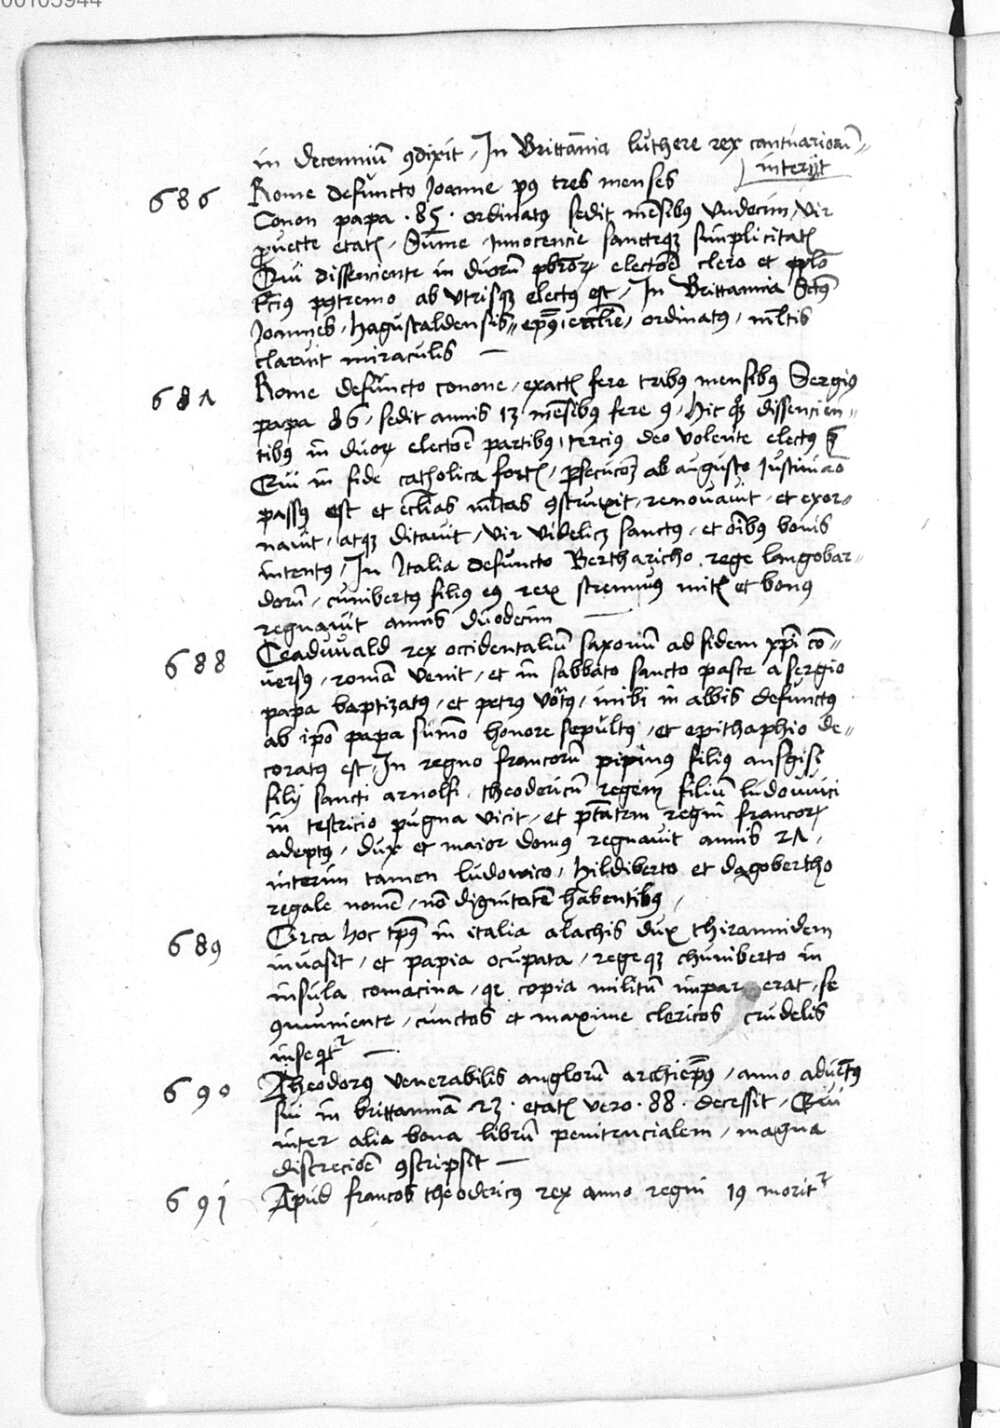 00103944
in decenniū ꝯdixit / In Brittānia luthere rex cantuariorū //
interijt
686 Rome defuncto Joanne pꝰ tres menses
Conon papa · 85 · ordinatꝰ sedit mēsibꝰ vndecim / vir
ꝓuecte etatꝭ / Sūme / innocencie sancteqꝫ simplicitatꝭ
Qui dissenciente in duorū pb̄rorꝝ electōe clero et pp̄lo
tʳciꝰ pꝰtremo ab vtrisqꝫ electꝰ est / In Brittannia Sctꝰ
Joannes / hagustaldensis // ep̄ꝰ ecclīe / ordinatꝰ / ml̄tis
claruit miraculis —
687 Rome defuncto conone / exactꝭ fere tribꝰ mensibꝰ Sergiꝰ
papa 86 / sedit annis 13 mēsibꝰ fere 9 / hic qꝫ dissencien //
tibꝰ in duorꝝ electōe partibꝰ / terciꝰ deo volente electꝰ
Qui in fide catholica fortꝭ / ꝑsecucōꝫ ab augusto Justiniāo
passꝰ est et eccl̄ias ml̄tas ꝯstruxit / renouauit / et exor //
nauit / atqꝫ ditauit / vir videlicꝫ sanctꝰ / et oībꝰ bonis
intentꝰ / In Italia defuncto Berthariche rege langobar //
dorū / cunibertꝰ filiꝰ eꝰ rex strennuꝰ mitꝭ et bonꝰ
regnauit annis duodecim —
688 Ceaduuald rex occidentaliū saxonū ad fidem xp̄i cō //
uersꝰ / romā venit / et in sabbato sancto pasce a sergio
papa baptizatꝰ / et petrꝰ vōtꝰ / inibi in albis defunctꝰ
ab ip̄o papa sūmo honore sepultꝰ / et epithaphio de //
coratꝰ est / In regno francorū pipinus filiꝰ ansgisi
filij sancti arnolfi / theodericū regem filiū ludouuici
in testricio pugna vicit / et ptātem regni francorꝝ
adeptꝰ / dux et maior domꝰ regnauit annis 27 /
interim tamen ludowico / hildiberto et dagobertho
regale nomē / nō dignitatē habentibꝰ /
689 Circa hoc tp̄ꝰ in italia alachis dux thirannidem
inuasit / et papia ocupata / regeqꝫ chuniberto in
insula comacina / qꝛ copia militū impar erat / se
ꝯmuniente / cunctos et maxime clericos crudelis
inseqitʳ —
690 Theodorꝰ venerabilis anglorū archiep̄ꝰ / anno aduētꝰ
sui in brittanniā 23 · etatꝭ vero · 88 · decessit / Qui
inter alia bona librū penitencialem / magna
discreciōe ꝯscripsit —
691 Apud francos theodericꝰ rex anno regni 19 moritʳ